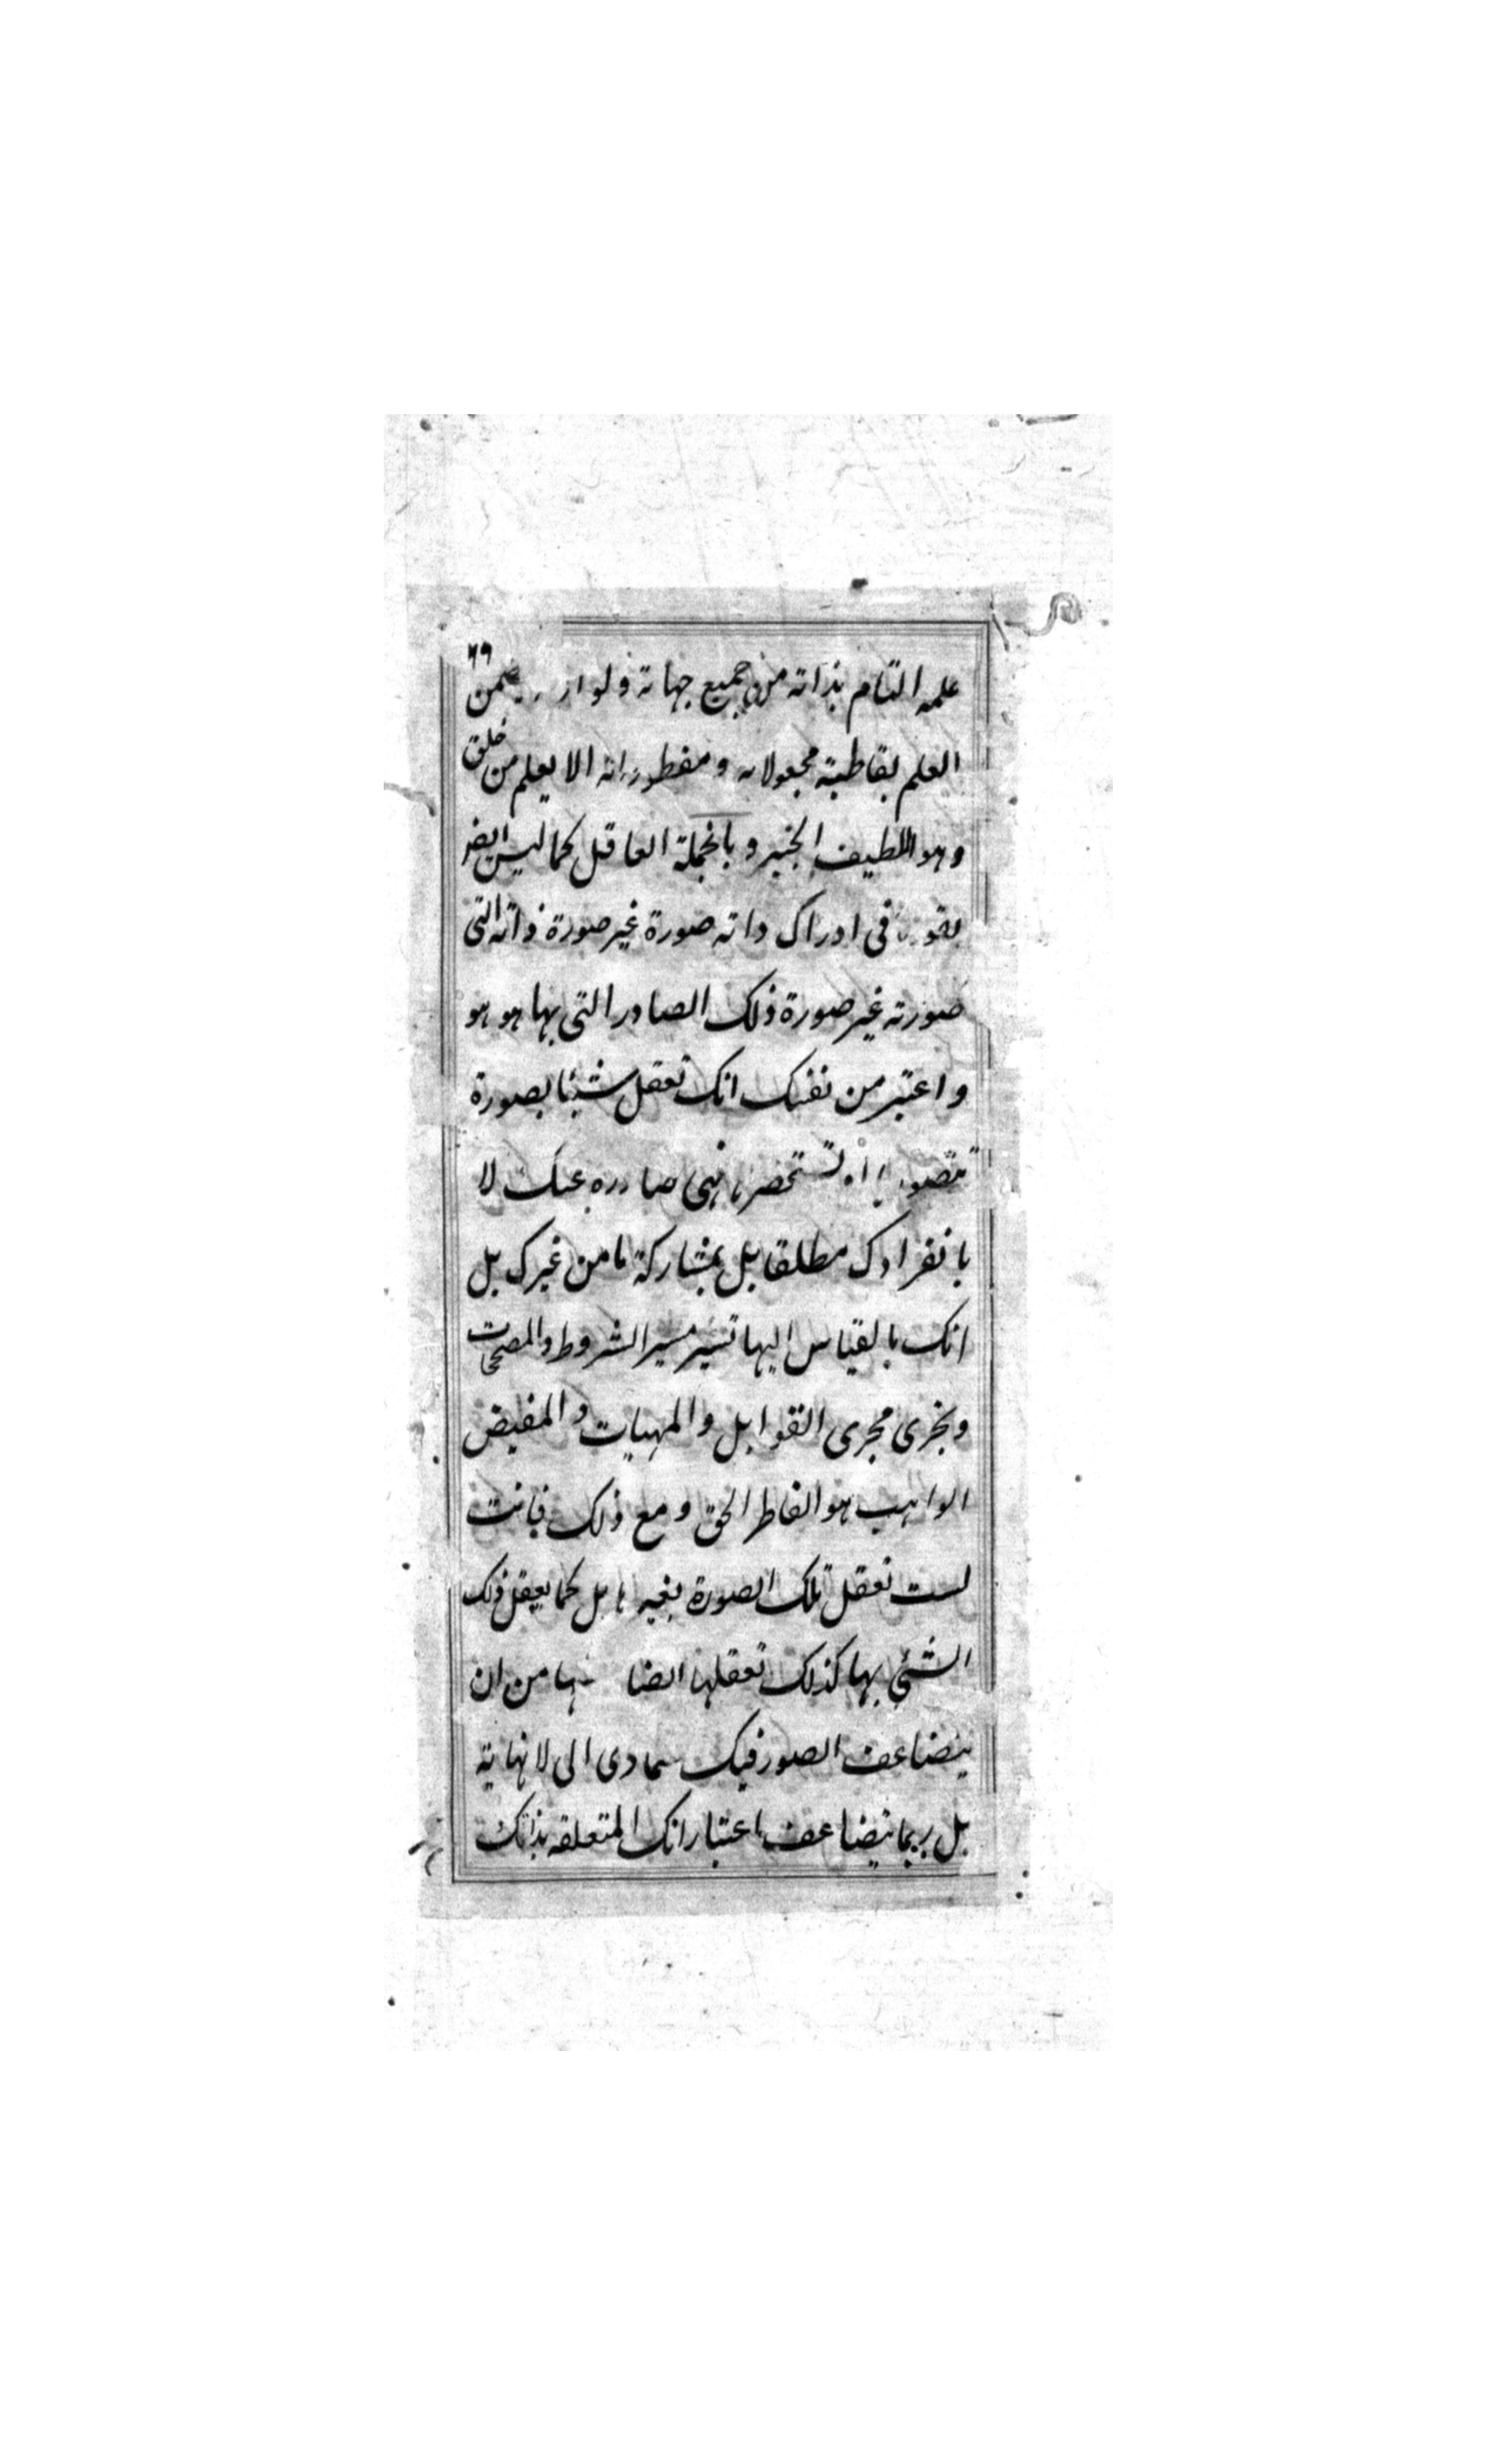 ٦٩
علمه التام بذاته من جميع جهاته و
العلم بقاطبة مجعولاته ومفطوراته الا يعلم من خلق
وهو اللطيف الخبير وبالجملة العاقل كما ليس
فى ادراك ذاته صورة غير صورة ذاته التى
صورته غير صورة ذلك الصادر التى بها هو هو
واعتبر من نفسك انك تعقل شيئا بصورة
تستحضرها فهى صادره عنك لا
بانفرادك مطلقا بل بمشاركة ما من غيرك بل
انك بالقياس اليها تسير مسير الشروط والمصححات
وتجرى مجرى القوابل والمهيات والمفيض
الواهب هو الفاطر الحق ومع ذلك فانت
لست تعقل تلك الصورة بغيرها بل كما يعقل ذلك
الشئ بها كذلك تعقلها ايضا بها من ان
يتضاعف الصور فيك الى لا نهاية
بل ربما تتضاعف اعتباراتك المتعلقه بذاتك